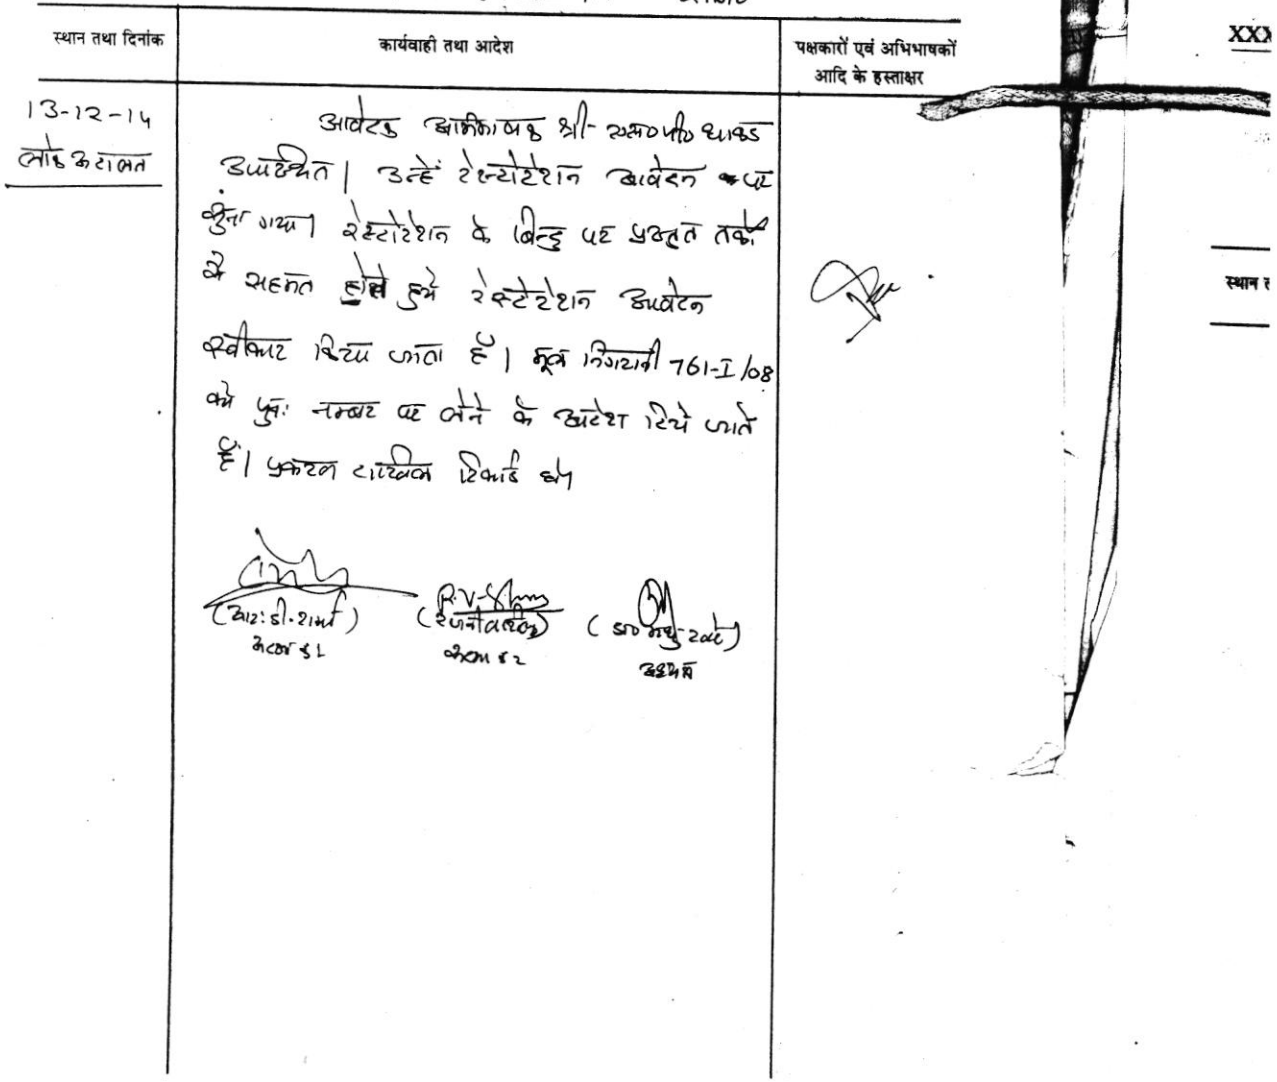 स्थान तथा दिनांक
कार्यवाही तथा आदेश
पक्षकारों एवं अभिभाषकों
आदि के हस्ताक्षर
XXX
13-12-14
लोक अदालत
आवेदक अभिभाषक श्री एस०पी० धाकड
उपस्थित। उन्हें रेस्टोरेशन आवेदन पर
सुना गया। रेस्टोरेशन के बिन्दु पर प्रस्तुत तर्को
से सहमत होते हुये रेस्टोरेशन आवेदन
स्वीकार किया जाता है। मूल निगरानी 761-I/08
को पुनः नम्बर पर लेने के आदेश दिये जाते
हैं। प्रकरण दाखिल रिकार्ड हो।
(आर. डी. शर्मा)
(डा० मधु खरे)
अध्यक्ष
स्थान त